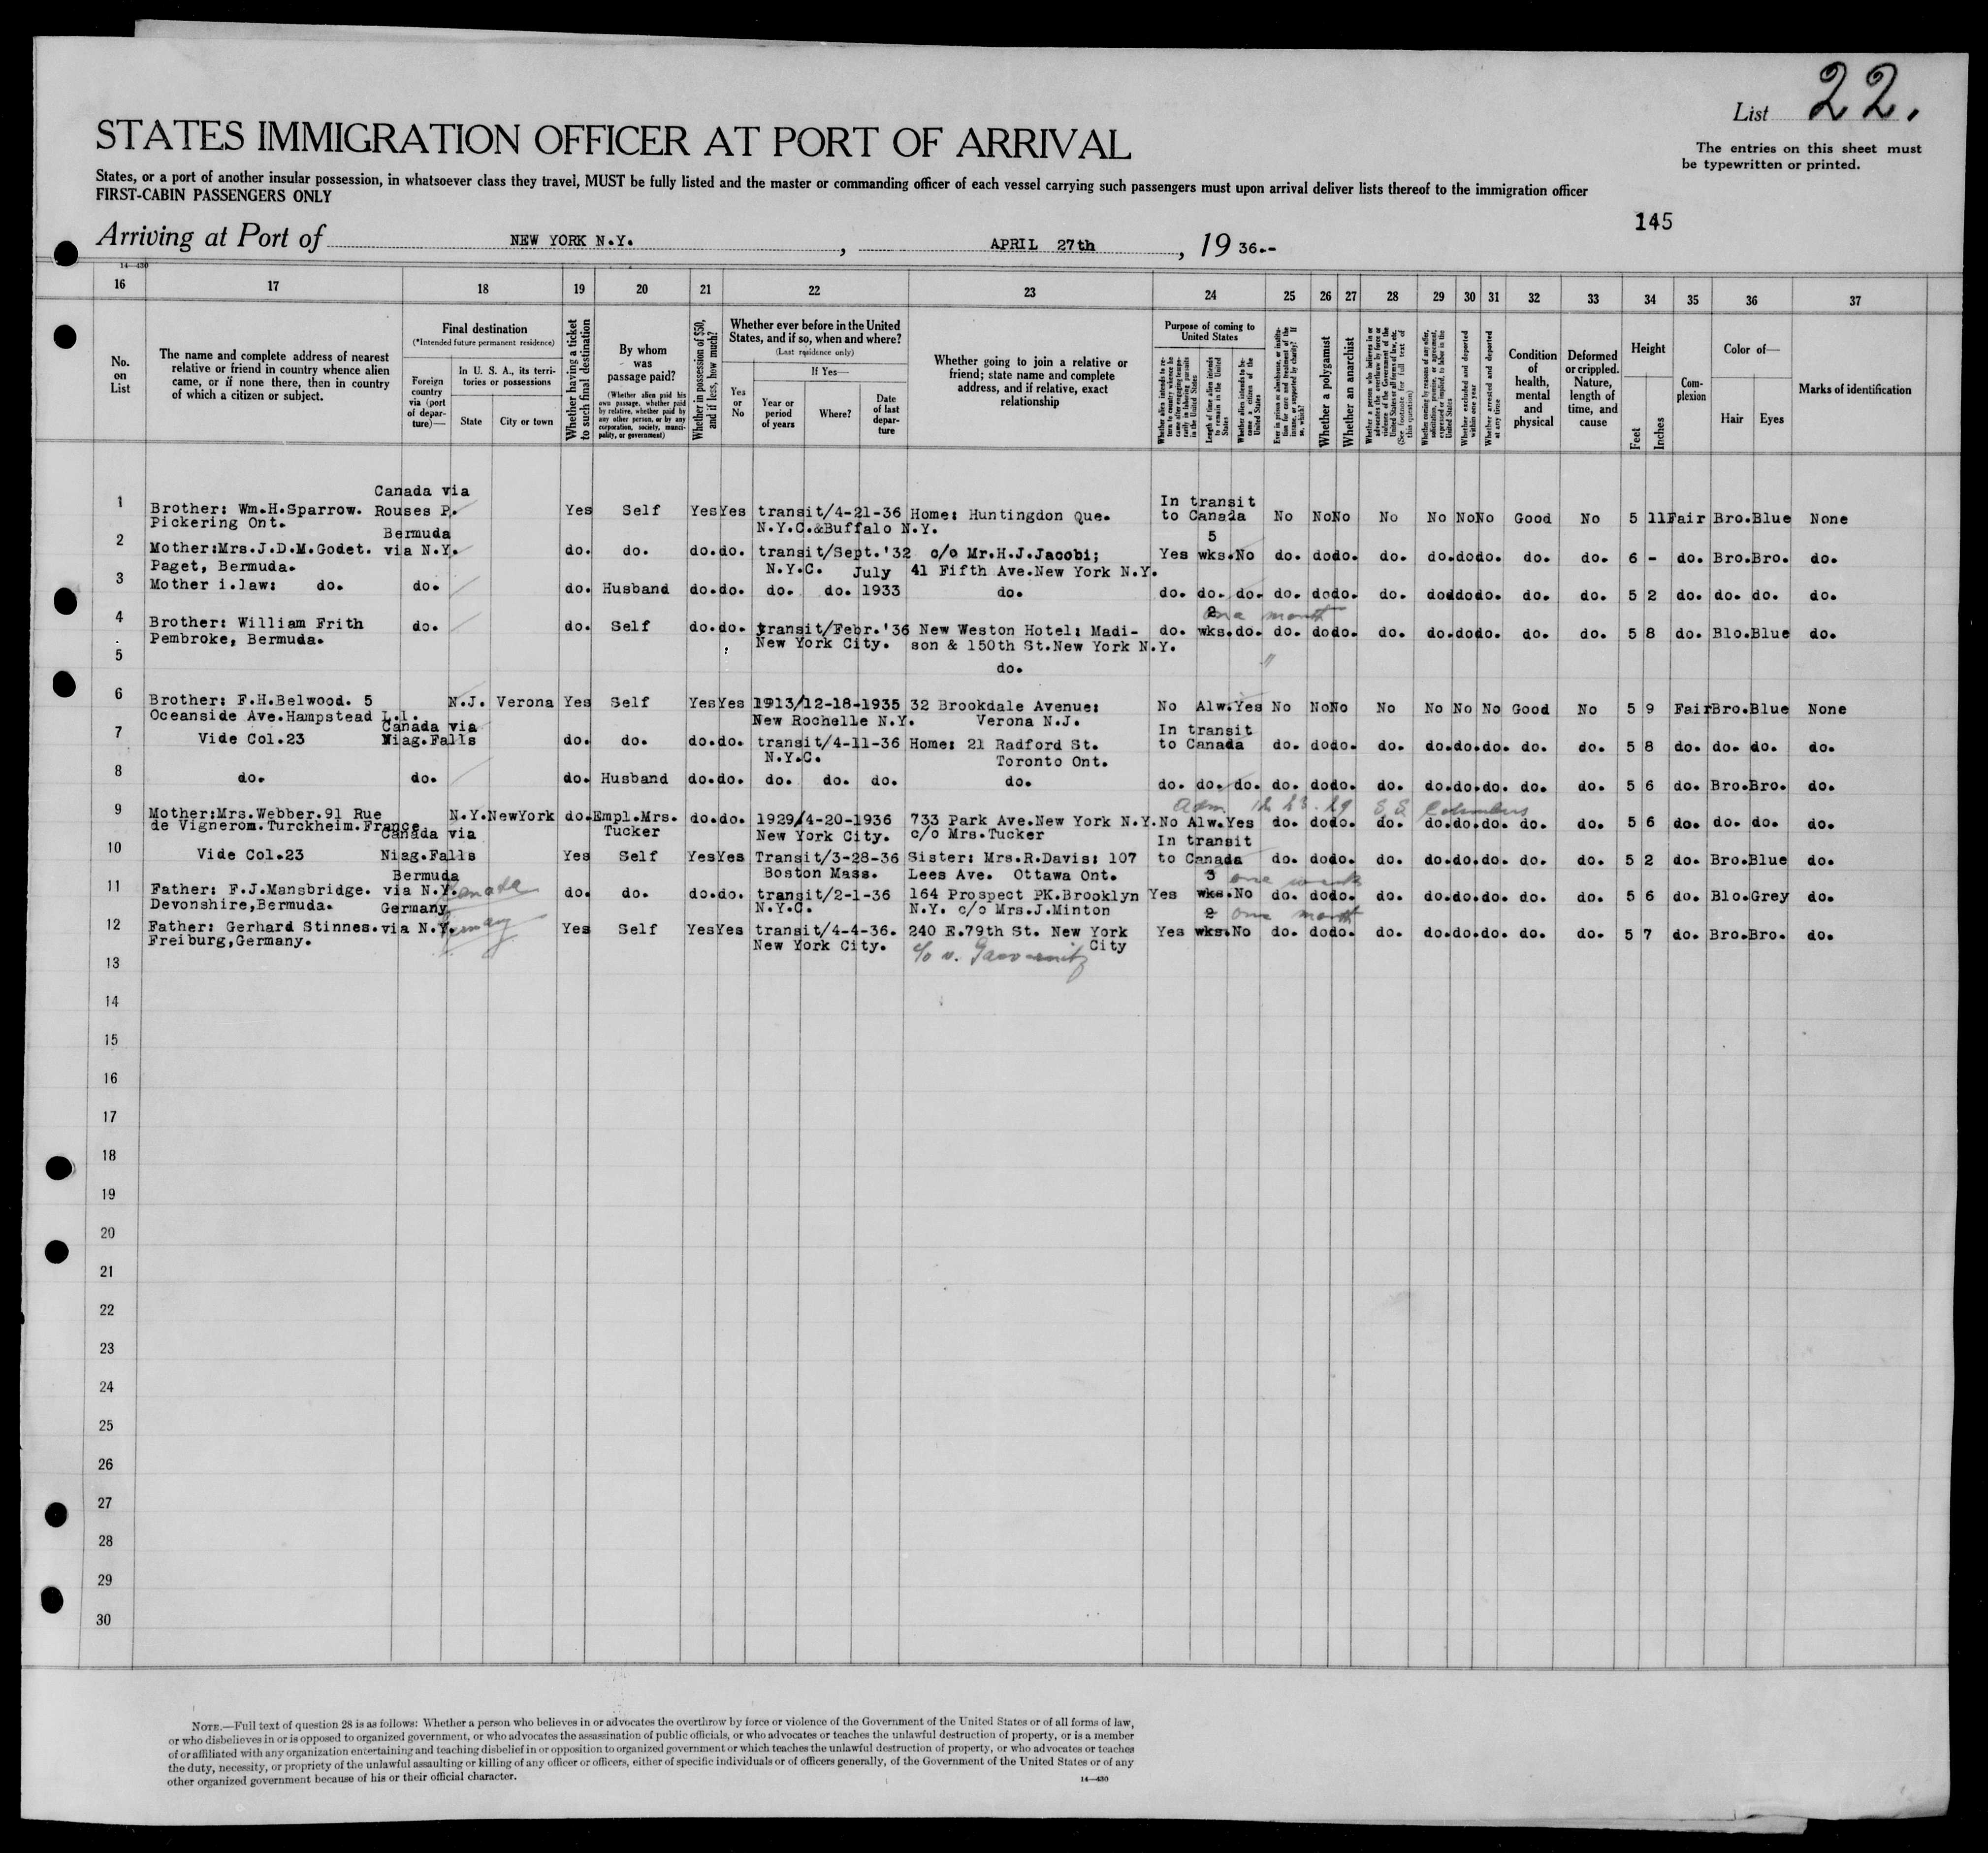 List 22.
The entries on this sheet must
be typewritten or printed.
STATES IMMIGRATION OFFICER AT PORT OF ARRIVAL
States, or a port of another insular possession, in whatsoever class they travel, MUST be fully listed and the master or commanding officer of each vessel carrying such passengers must upon arrival deliver lists thereof to the immigration officer
FIRST-CABIN PASSENGERS ONLY
145
Arriving at Port of NEW YORK N.Y. , APRIL 27th , 19 36.-
14—430
16 17 18 19 20 21 22 23 24 25 26 27 28 29 30 31 32 33 34 35 36 37
No. on List
The name and complete address of nearest relative or friend in country whence alien came, or if none there, then in country of which a citizen or subject.
Final destination
(*Intended future permanent residence)
Foreign country via (port of departure)—
In U. S. A., its territories or possessions
State
City or town
Whether having a ticket to such final destination
By whom was passage paid?
(Whether alien paid his own passage, whether paid by relative, whether paid by any other person, or by any corporation, society, municipality, or government)
Whether in possession of $50, and if less, how much?
Whether ever before in the United States, and if so, when and where?
(Last residence only)
Yes or No
If Yes—
Year or period of years
Where?
Date of last departure
Whether going to join a relative or friend; state name and complete address, and if relative, exact relationship
Purpose of coming to United States
Whether alien intends to return to country whence he came after engaging temporarily in laboring pursuits in the United States
Length of time alien intends to remain in the United States
Whether alien intends to become a citizen of the United States
Ever in prison or almshouse, or institution for care and treatment of the insane, or supported by charity? If so, which?
Whether a polygamist
Whether an anarchist
Whether a person who believes in or advocates the overthrow by force or violence of the Government of the United States or all forms of law, etc. (See footnote for full text of this question)
Whether coming by reasons of any offer, solicitation, promise, or agreement, expressed or implied, to labor in the United States
Whether excluded and deported within one year
Whether arrested and deported at any time
Condition of health, mental and physical
Deformed or crippled. Nature, length of time, and cause
Height
Feet
Inches
Complexion
Color of—
Hair
Eyes
Marks of identification
Canada via In transit
1 Brother: Wm.H.Sparrow. Rouses P. Yes Self Yes Yes transit/4-21-36 Home: Huntingdon Que. to Canada No No No No No No No Good No 5 11 Fair Bro. Blue None
Pickering Ont. N.Y.C.&Buffalo N.Y.
Bermuda 5
2 Mother:Mrs.J.D.M.Godet. via N.Y. do. do. do. do. transit/Sept.'32 c/o Mr.H.J.Jacobi; Yes wks. No do. do do. do. do. do do. do. do. 6 - do. Bro. Bro. do.
Paget, Bermuda. N.Y.C. July 41 Fifth Ave.New York N.Y.
3 Mother i.law: do. do. do. Husband do. do. do. do. 1933 do. do. do. do. do. do do. do. do do do. do. do. 5 2 do. do. do. do.
2 one month
4 Brother: William Frith do. do. Self do. do. transit/Febr.'36 New Weston Hotel: Madi- do. wks. do. do. do do. do. do. do do. do. do. 5 8 do. Blo. Blue do.
Pembroke, Bermuda. New York City. son & 150th St.New York N.Y.
5 do. "
6 Brother: F.H.Belwood. 5 N.J. Verona Yes Self Yes Yes 1913/12-18-1935 32 Brookdale Avenue: No Alw. Yes No No No No No No No Good No 5 9 Fair Bro. Blue None
Oceanside Ave.Hampstead L.i. New Rochelle N.Y. Verona N.J.
Canada via In transit
7 Vide Col.23 Niag.Falls do. do. do. do. transit/4-11-36 Home: 21 Radford St. to Canada do. do do. do. do. do. do. do. do. 5 8 do. do. do. do.
N.Y.C. Toronto Ont.
8 do. do. do. Husband do. do. do. do. do. do. do. do. do. do. do do. do. do. do. do. do. do. 5 6 do. Bro. Bro. do.
S.S. Columbus
9 Mother:Mrs.Webber.91 Rue N.Y. NewYork do. Empl.Mrs. do. do. 1929/4-20-1936 733 Park Ave.New York N.Y. No Alw. Yes do. do do. do. do. do. do. do. do. 5 6 do. do. do. do.
de Vignerom.Turckheim.France Tucker New York City. c/o Mrs.Tucker
Canada via In transit
10 Vide Col.23 Niag.Falls Yes Self Yes Yes Transit/3-28-36 Sister: Mrs.R.Davis: 107 to Canada do. do do. do. do. do. do. do. do. 5 2 do. Bro. Blue do.
Bermuda Boston Mass. Lees Ave. Ottawa Ont. 3 one week
11 Father: F.J.Mansbridge. via N.Y. Canada do. do. do. do. transit/2-1-36 164 Prospect PK.Brooklyn Yes wks. No do. do do. do. do. do. do. do. do. 5 6 do. Blo. Grey do.
Devonshire,Bermuda. Germany N.Y.C. N.Y. c/o Mrs.J.Minton 2 one month
12 Father: Gerhard Stinnes. via N.Y. Yes Self Yes Yes transit/4-4-36. 240 E.79th St. New York Yes wks. No do. do do. do. do. do. do. do. do. 5 7 do. Bro. Bro. do.
Freiburg,Germany. New York City. City
c/o v.
13
14
15
16
17
18
19
20
21
22
23
24
25
26
27
28
29
30
NOTE.—Full text of question 28 is as follows: Whether a person who believes in or advocates the overthrow by force or violence of the Government of the United States or of all forms of law,
or who disbelieves in or is opposed to organized government, or who advocates the assassination of public officials, or who advocates or teaches the unlawful destruction of property, or is a member
of or affiliated with any organization entertaining and teaching disbelief in or opposition to organized government or which teaches the unlawful destruction of property, or who advocates or teaches
the duty, necessity, or propriety of the unlawful assaulting or killing of any officer or officers, either of specific individuals or of officers generally, of the Government of the United States or of any
other organized government because of his or their official character.
14—430